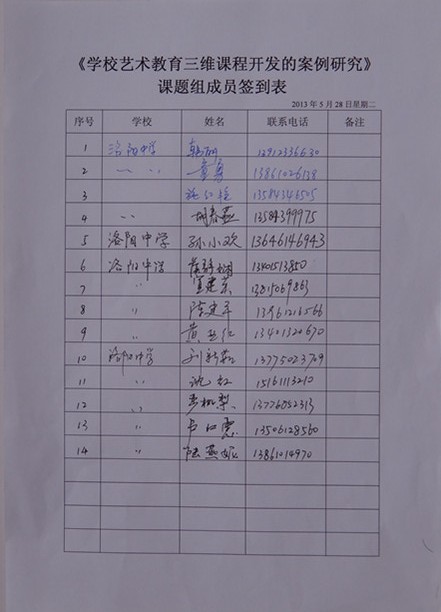 《学校艺术教育三维课程开发的案例研究》
课题组成员签到表
2013年5月28日星期二
序号 学校 姓名 联系电话 备注
1 洛阳中学
2 〃 〃 13861026128
3 13584346505
4 〃 胡春燕 13584399975
5 洛阳中学 孙小欢 13646146943
6 洛阳中学 13401513850
7 〃 13815069863
8 〃 陆建军 13961216566
9 〃 13401320670
10 洛阳中学 13775023709
11 〃 沈虹 15161113210
12 〃 13776052313
13 〃 13506128560
14 〃 陆燕 13861014970